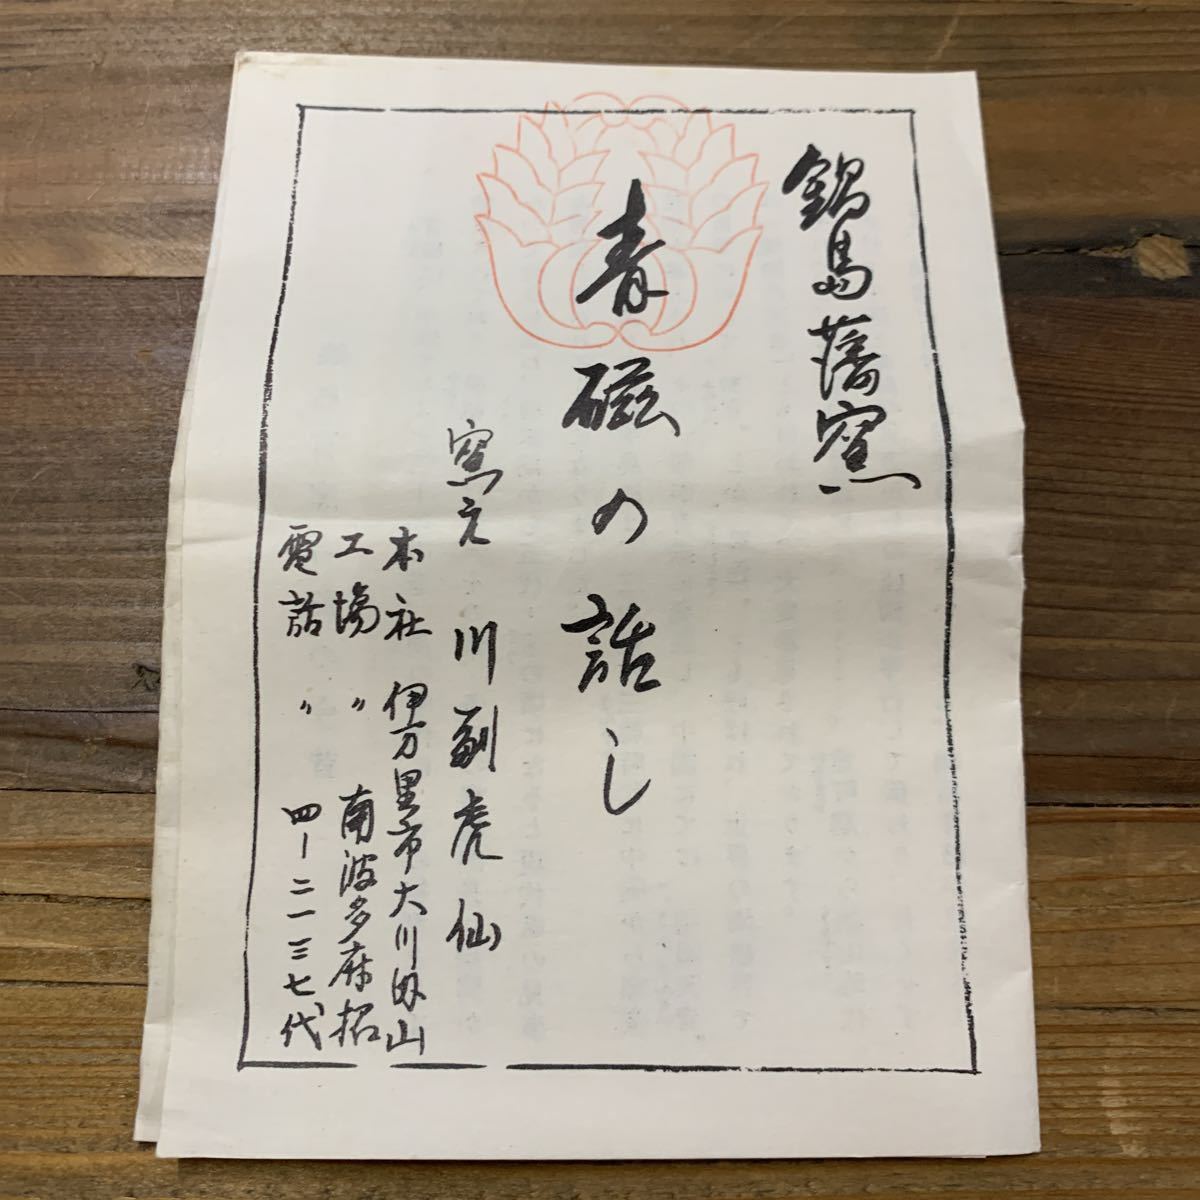 鍋島藩窯
青磁の話し
窯元 川副虎仙
本社 伊万里市大川内山
工場 〃 南波多府招
電話 〃 四ー二一三七代